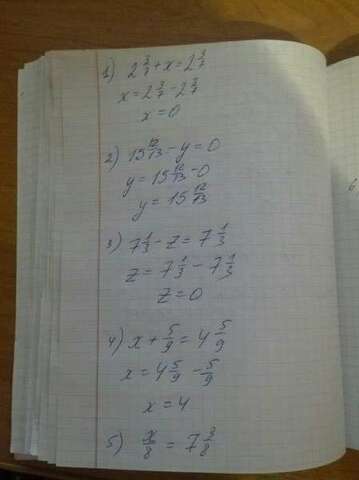 1) 2 3/7 + x = 2 3/7
x = 2 3/7 - 2 3/7
x = 0
2) 15 12/13 - y = 0
y = 15 12/13 - 0
y = 15 12/13
3) 7 1/3 - z = 7 1/3
z = 7 1/3 - 7 1/3
z = 0
4) x + 5/9 = 4 5/9
x = 4 5/9 - 5/9
x = 4
5) x/8 = 7 3/8